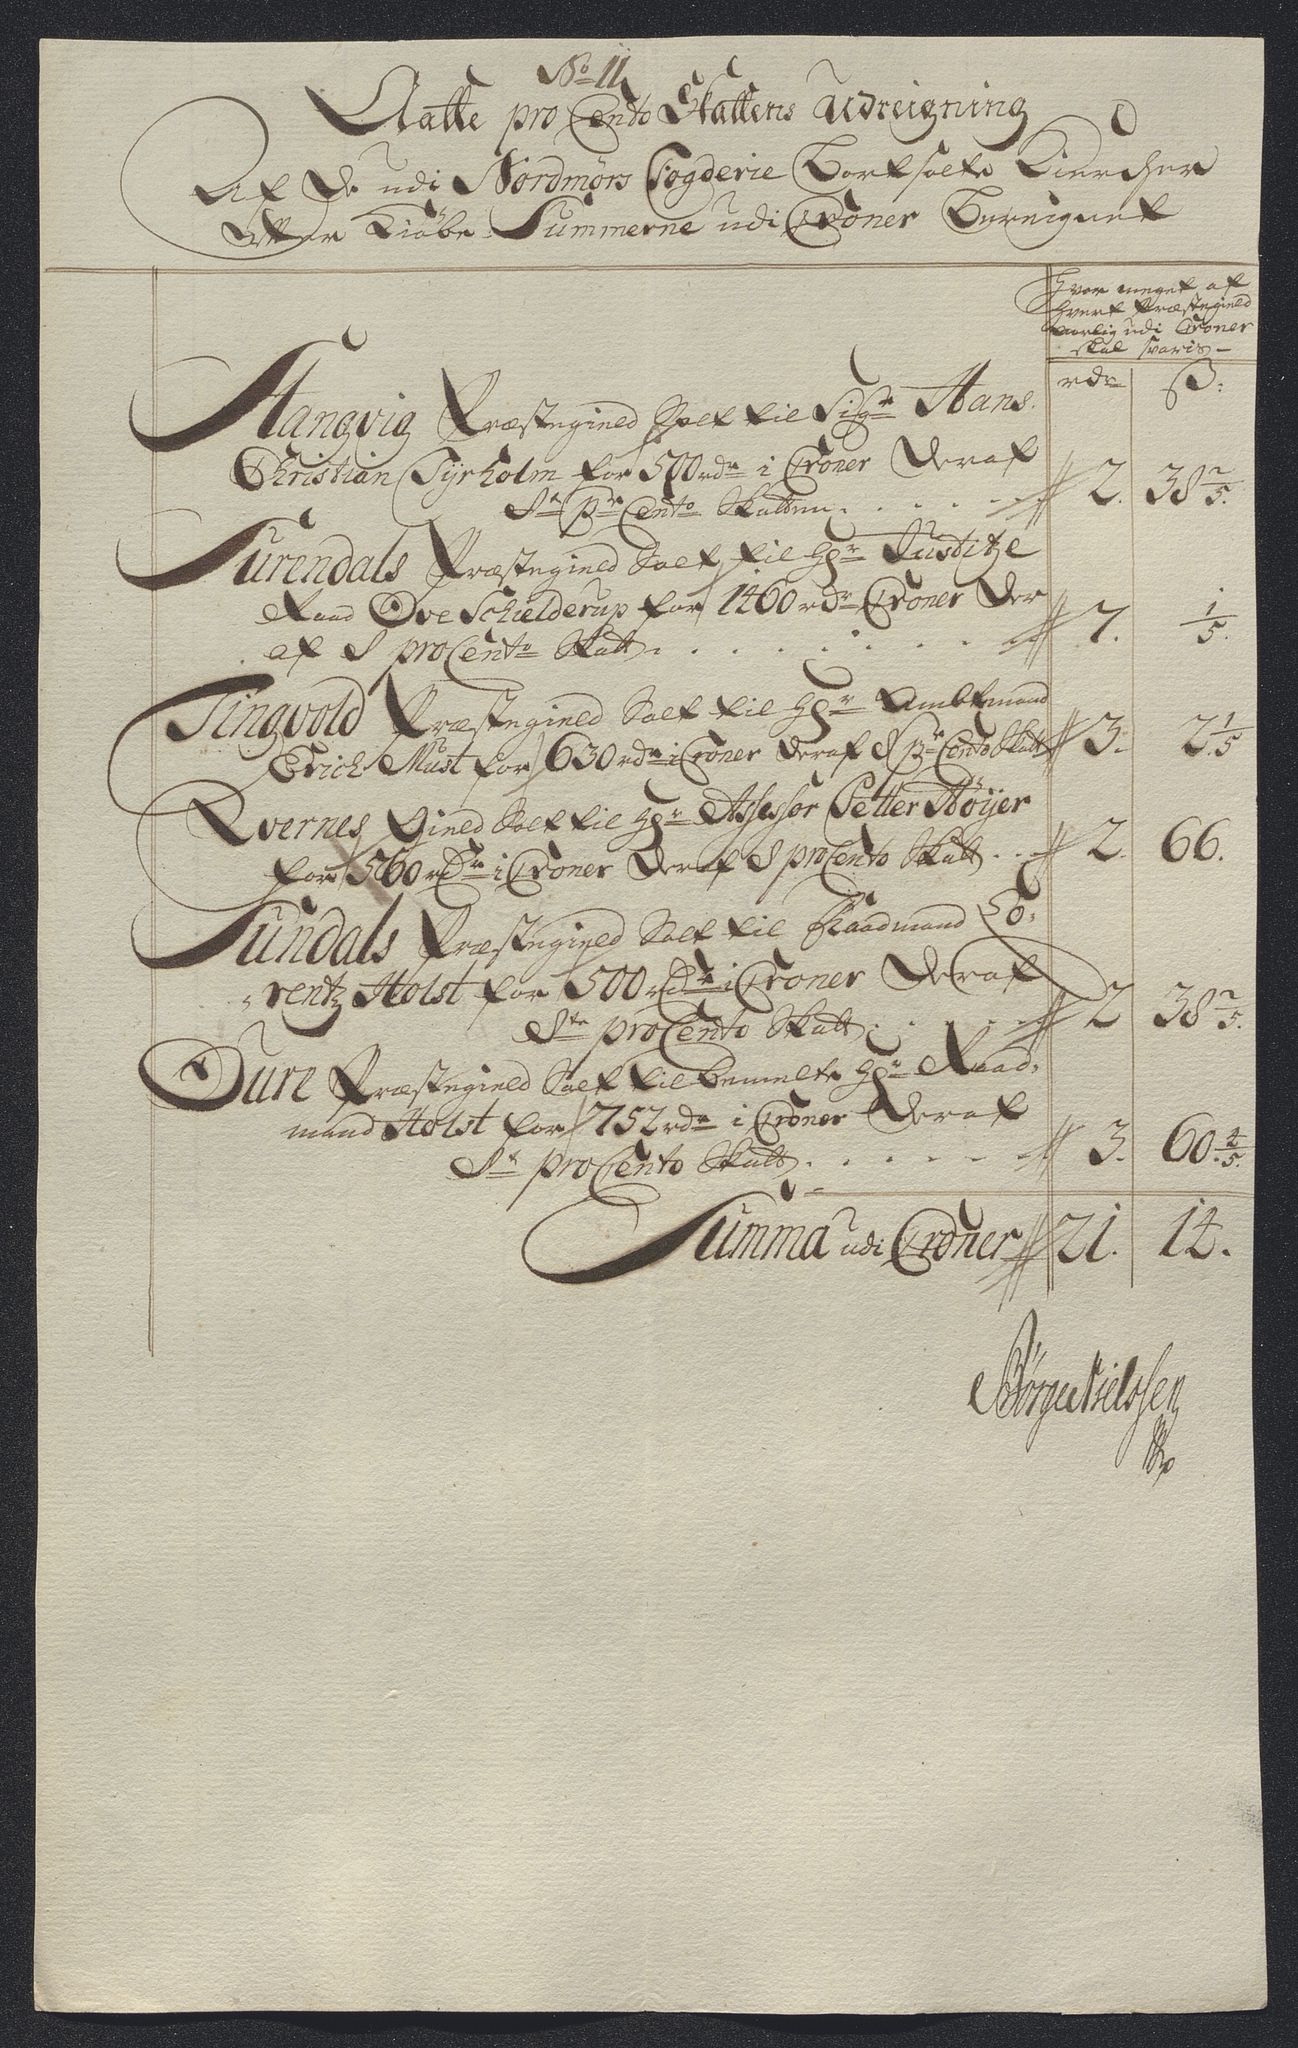 No 11
Aatte pro Cento Skattens Udreigning
Af De udi Nordmørs Fogderie Bortsolte Kiercher
Efter Kiøbe Summerne udi Croner Bereignet
Hvor meget af
hvert Præstegield
aarlig udi Croner
skal svaris
rdr ß:
Stangvig Præstegield Solt til Sigr Hans
Christian Tyrholm for 500 rdr i Croner Deraf
8te pr Cento Skatten 2. 38 2/5.
Surendals Præstegield Solt til Hr Justitze
Raad Ove Schielderup for 1460 rdr Croner Der
af 8 pro Cento Skatt 7. 1/5.
Tingvold Præstegield Solt til Hr Ambtmand
Erich Must for 630 rdr i Croner deraf 8 pr Cento Skatt 3. 2 1/5
Qvernes Gield Solt til Hr Assessor Petter Høyer
for 560 rdr i Croner Deraf 8 pro Cento Skatt 2. 66.
Sundals Præstegield Solt til Raadmand Lo-
rentz Holst for 500 rdr i Croner Deraf
8te pro Cento Skatt 2 38 2/5.
Aure Præstegield Solt til bemelte Hr Raad-
mand Holst for 752 rdr i Croner Deraf
8te pro Cento Skatt 3. 60 4/5.
Summa udi Croner 21. 14.
Børge Nielssen